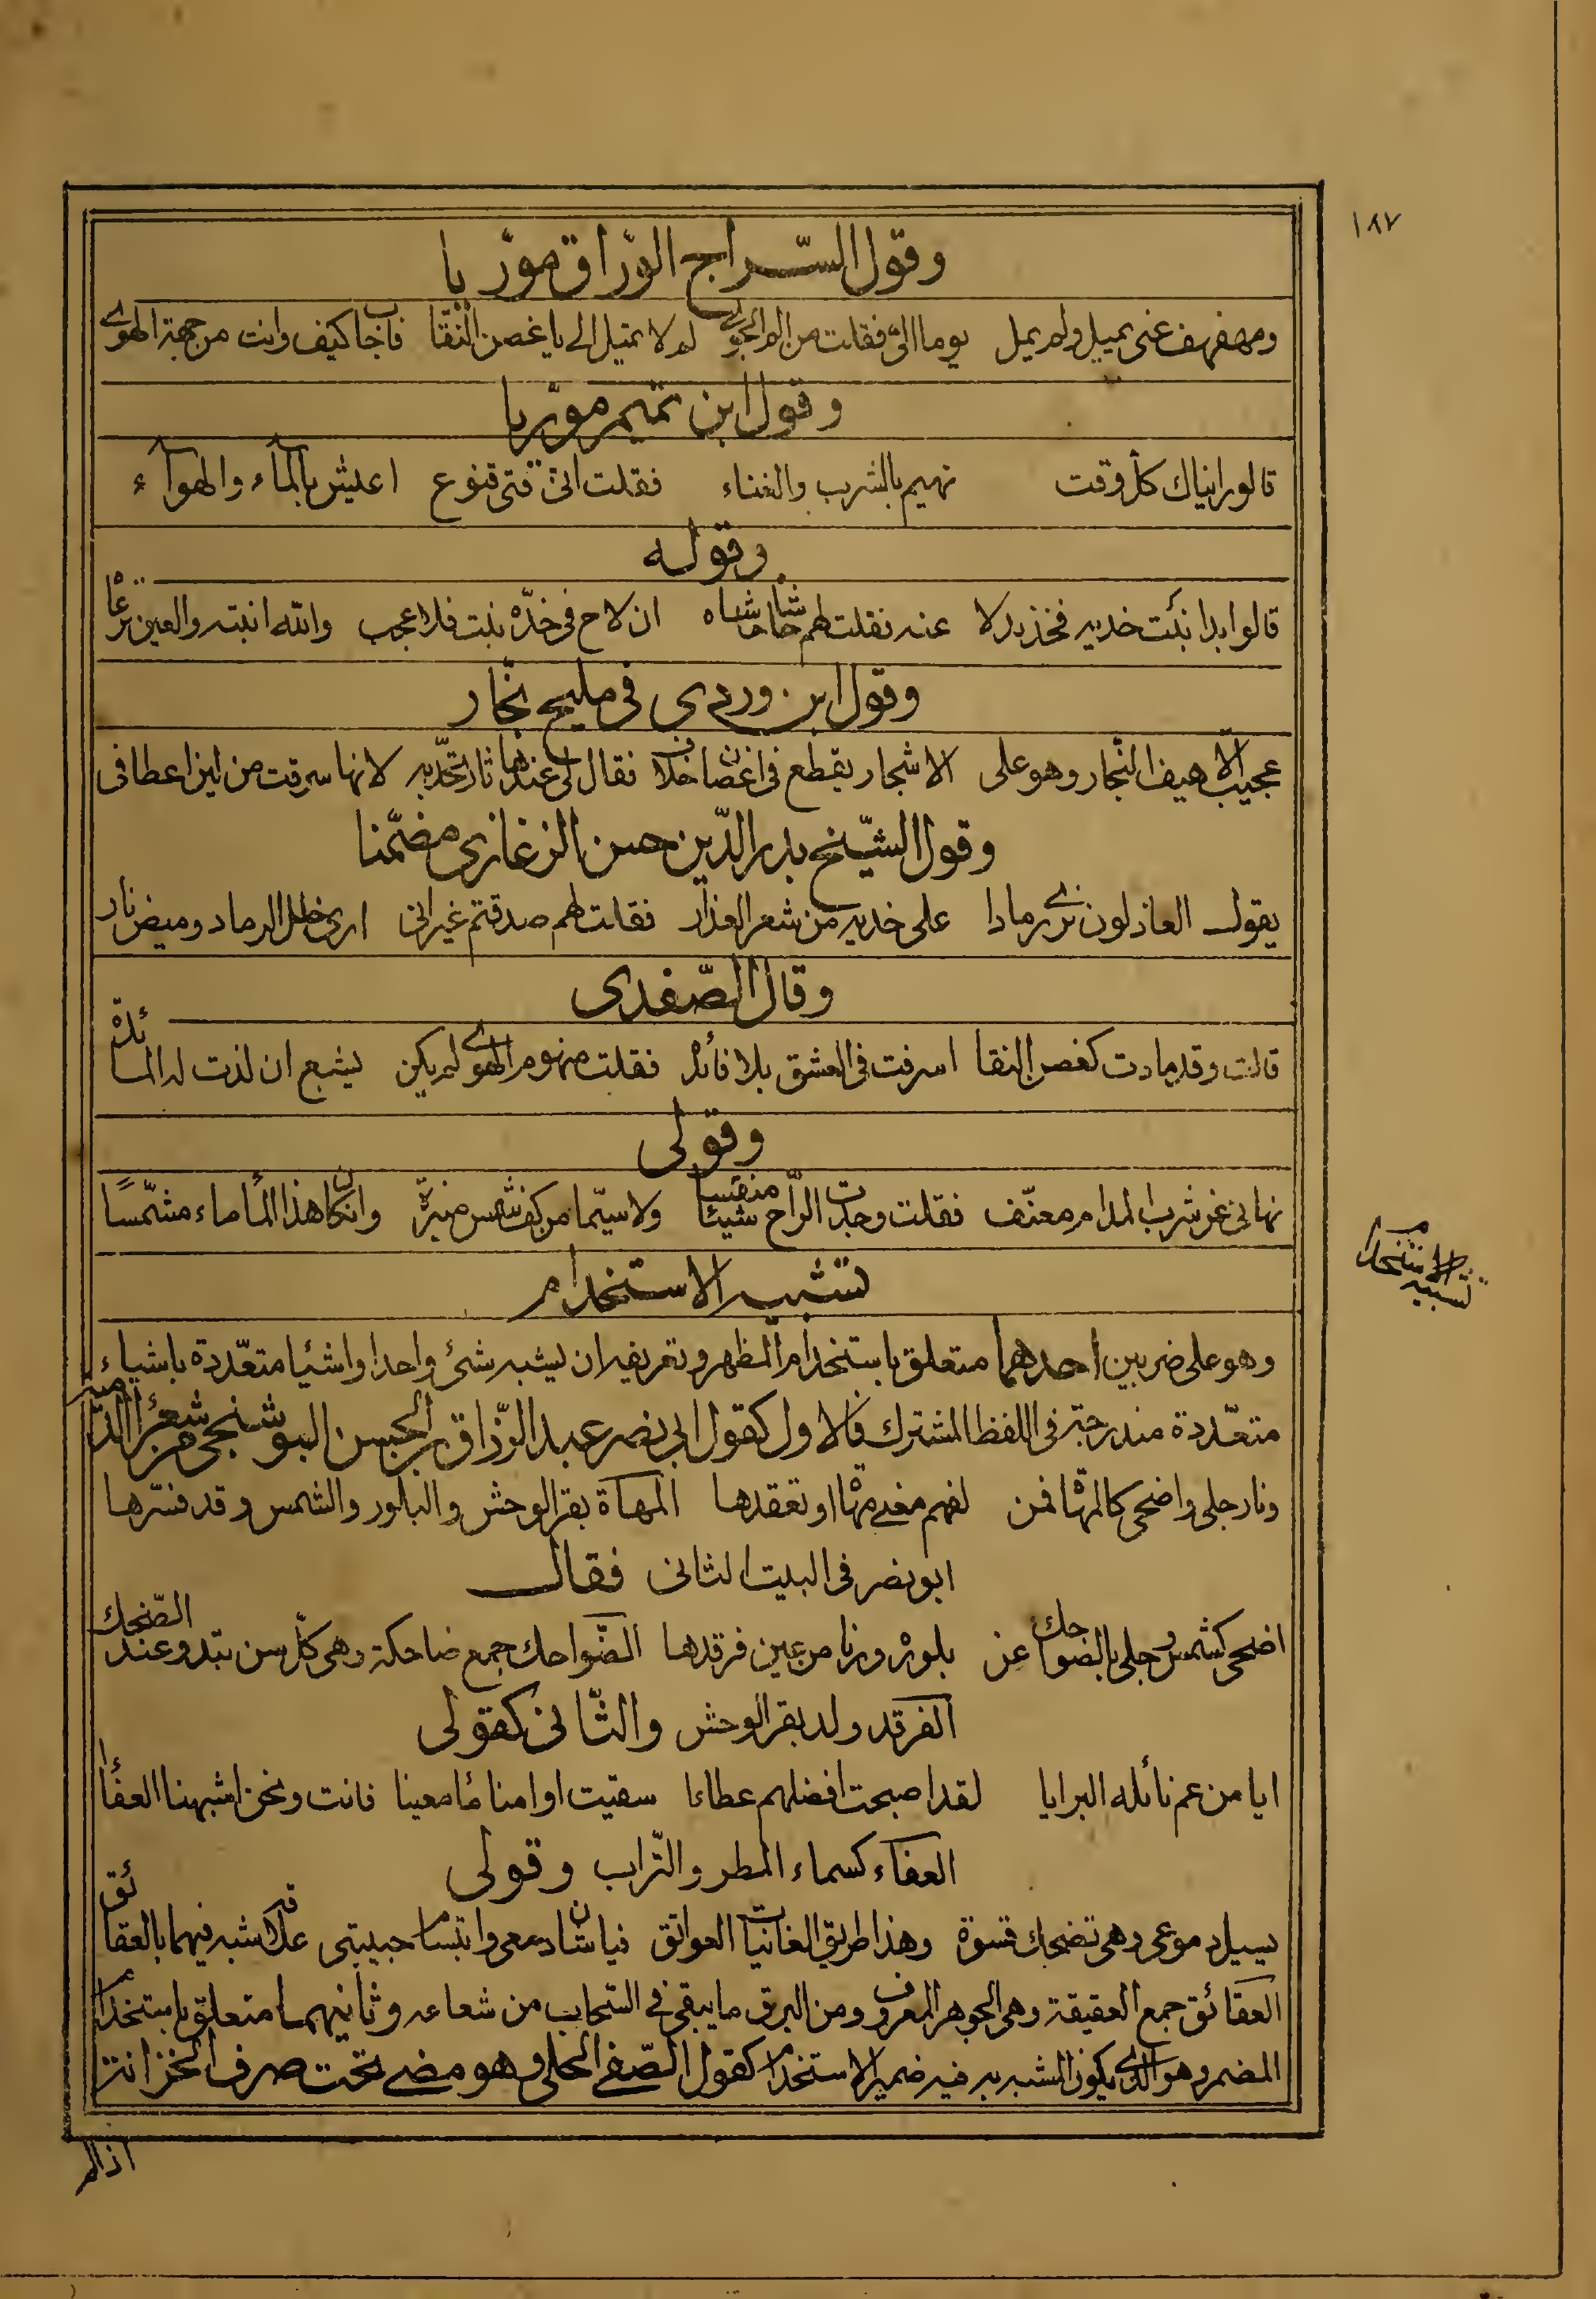 ١٨٧
وقول السّراج الورّاق مورّيا
ومهفهف عنى يميل ولم يمل يوما الىّ فقلت من الم الجوى لم لا تميل الى يا غصن النّقا فاجاب كيف وانت من جهة الهوى
وقول ابن تميم مورّيا
قالو رايناك كل وقت تهيم بالشرب والغناء فقلت انى فتى قنوع اعيش بالمآء والهوآء
وقوله
قالوا بدا نبت خديه فخذ بدلا عنه فقلت لهم حاشاه ان لاح فى خدّه نبت فلا عجب والله انبته والعين ترعاه
وقول ابن وردى فى مليح نجّار
عجيب الاهيف النّجار وهو على الاشجار يقطع فى اغصان خلاف فقال لى عندها ثار لانها سرقت من لين اعطافى
وقول الشّيخ بدر الدّين حسن الزغازى مضمّنا
يقول العاذلون نرى رمادا على خديه من شعر العذار فقلت لهم صدقتم غير انى ارى خلل الرماد وميض نار
وقال الصّفدى
قالت وقد مادت كغصن النقا اسرفت فى العشق بلا فائده فقلت منهوم الهوى لم يكن يشبع ان لذت له المائدة
وقولى
نهانى عن شرب المدام معنّف فقلت وجدت الرّاح شيئا منفّسا ولا سيّما من كف شمس منيرة وان كان هذا المأ ماء مشمّسًا
تشبيه الاستخدام
تشبيه الاستخدام
وهو على ضربين احدهما متعلق باستخدام المظهر وتعريفه ان يشبه شئ واحد او اشيا متعّددة باشياء
متعّددة مندرجة فى اللفظ المشترك فالاول كقول ابى نصر عبد الرّزاق بن الحسن البوشنجى من شعرأ الدمية
ونار جلى واضحى كالمهاة فمن لفهم معنى مهاة او تعقدها المهاة بقر الوحش والبلور والشمس وقد فسّرها
ابو نصر فى البيت الثانى فقال
اضحى كشمس وجلى بالضواحك عن بلوره ورنا من عين فرقدها الضّواحك جمع ضاحكة وهى كلّ سن تبدو عند الضّحك
الفرقد ولد بقر الوحش والثّانى كقولى
ايا من عم نائله البرايا لقد اصبحت افضلهم عطاءا سقيت اوامنا مأ معينا فانت ونحن اشبهنا العفأا
العفآء كسماء المطر والتّراب وقولى
يسيل دموعى وهى تضحك قسوة وهذا طريق الغانيات العواتق فيا شان دمعى وابتسام حبيبتى شبه فيهما بالعقائق
العقائق جمع العقيقة وهى الجوهر المعروف ومن البرق ما يبقى فى السّحاب من شعاعه وثانيهما متعلق باستخدام
المضمر وهو الذى يكون المشبه به فيه ضمير الاستخدام كقول الصّفى الحلى وهو مضى تحت صرف الخزانة
اذالم